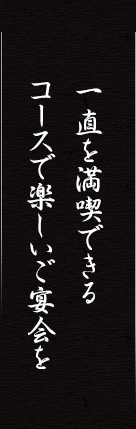 一直を満喫できる
コースで楽しいご宴会を